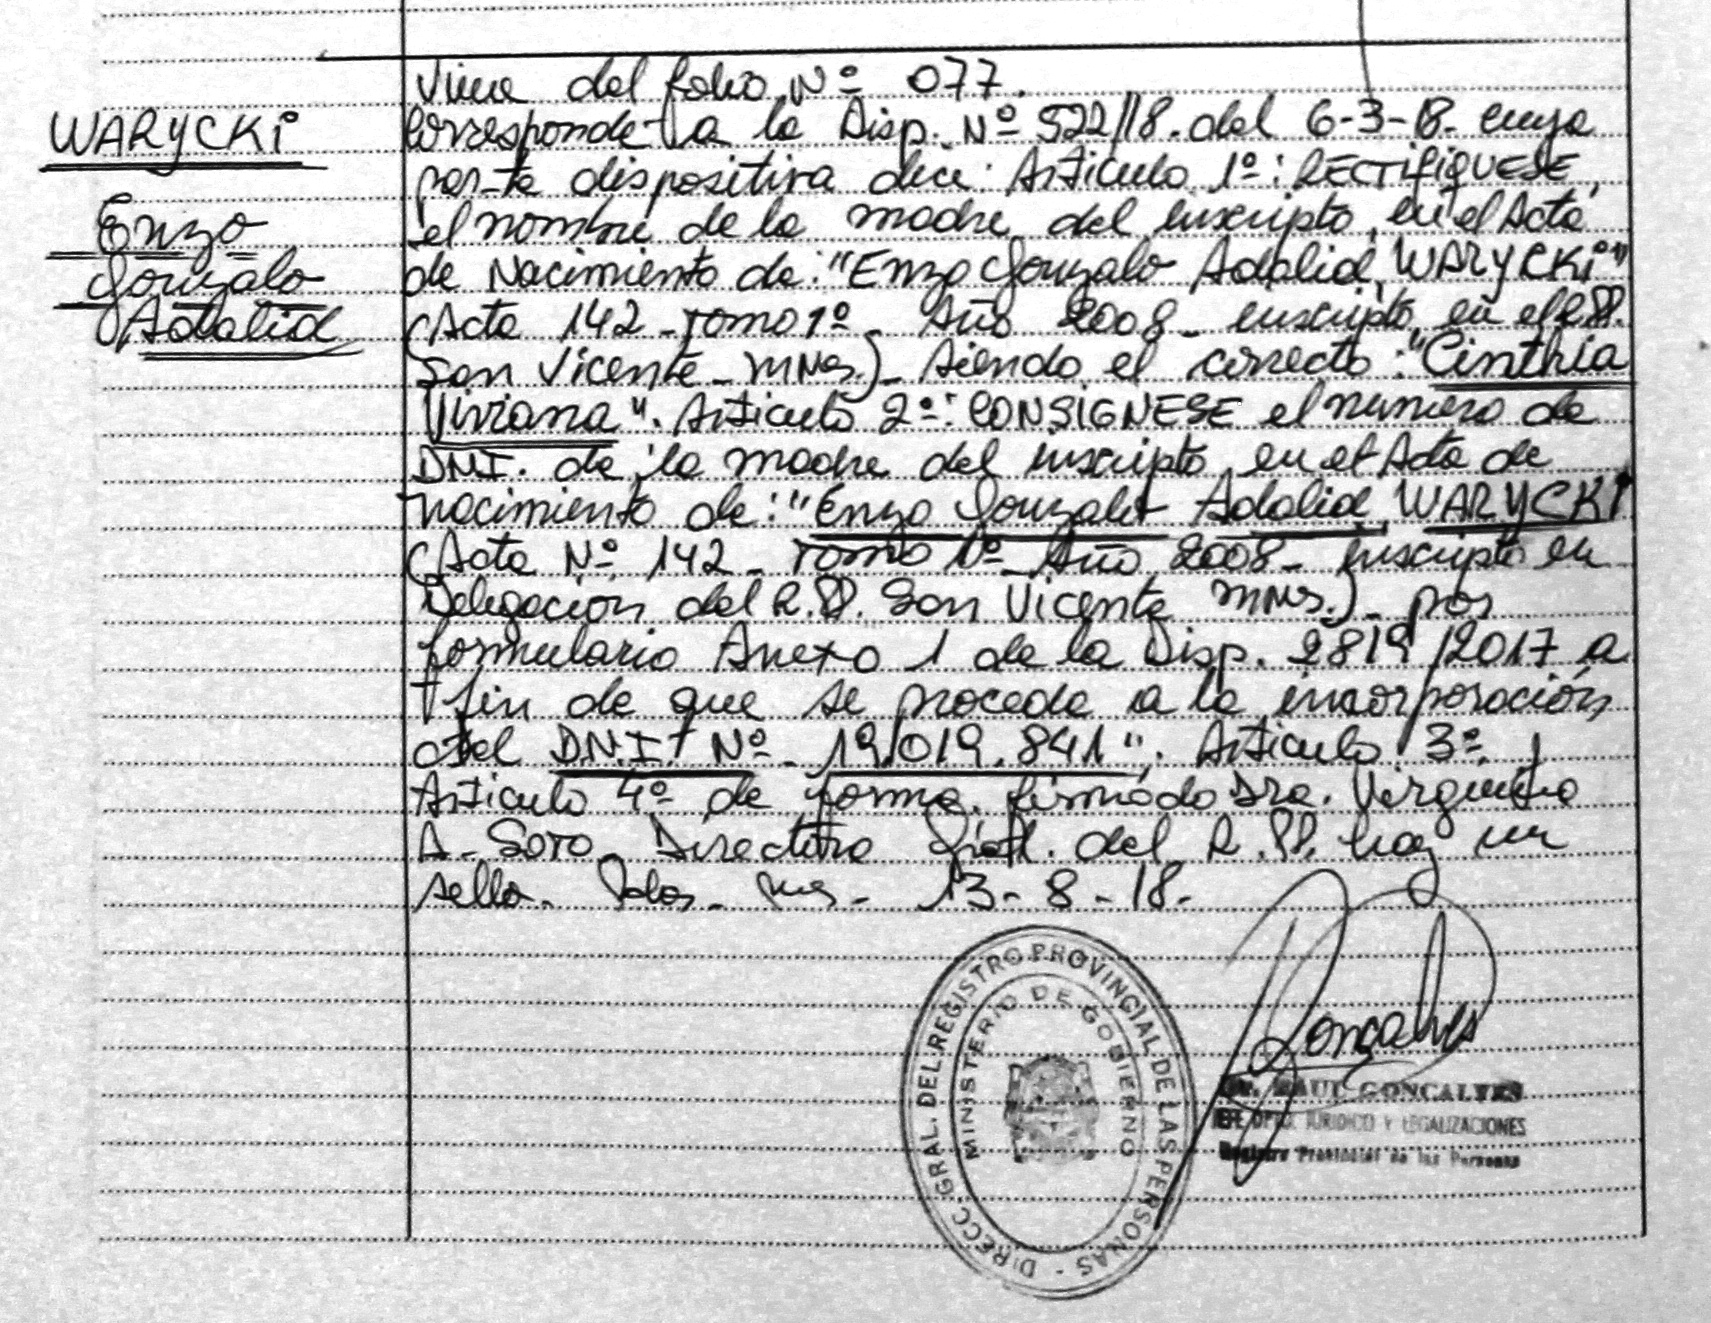 WARYCKi
Enzo
Gonzalo
Adalid
Viene del folio Nº 077.
Corresponde a la Disp. Nº 522/18. del 6-3-18. cuya
parte dispositiva dice: Articulo 1º: RECTIFIQUESE,
el nombre de la madre del inscripto, en el Acta
de Nacimiento de: "Enzo Gonzalo Adalid, WARYCKi"
(Acta 142 - Tomo 1º - Año 2008 - inscripto en el R.PP.
San Vicente - Mnes.) - siendo el correcto: "Cinthia
Viviana". Articulo 2º: CONSIGNESE el numero de
DNI. de la madre del inscripto, en el Acta de
nacimiento de: "Enzo Gonzalo Adalid, WARYCKI
(Acta Nº 142 - Tomo 1º - Año 2008 - inscripto en
Delegacion del R.PP. San Vicente Mnes.) - por
formulario Anexo 1 de la Disp. 2819/2017 a
fin de que se proceda a la incorporación
del D.N.I. Nº - 19.019.841". Articulo 3º y
Articulo 4º de forma. firmado Dra. Virginia
A. Soto Directora Gral. del R.PP. hay un
sello. Pdas. Mnes. 13-8-18.
DIRECC. GRAL. DEL REGISTRO PROVINCIAL DE LAS PERSONAS -
MINISTERIO DE GOBIERNO
Goncalves
Dr. RAUL GONCALVES
JEFE DPTO. JURIDICO Y LEGALIZACIONES
Registro Provincial de las Personas